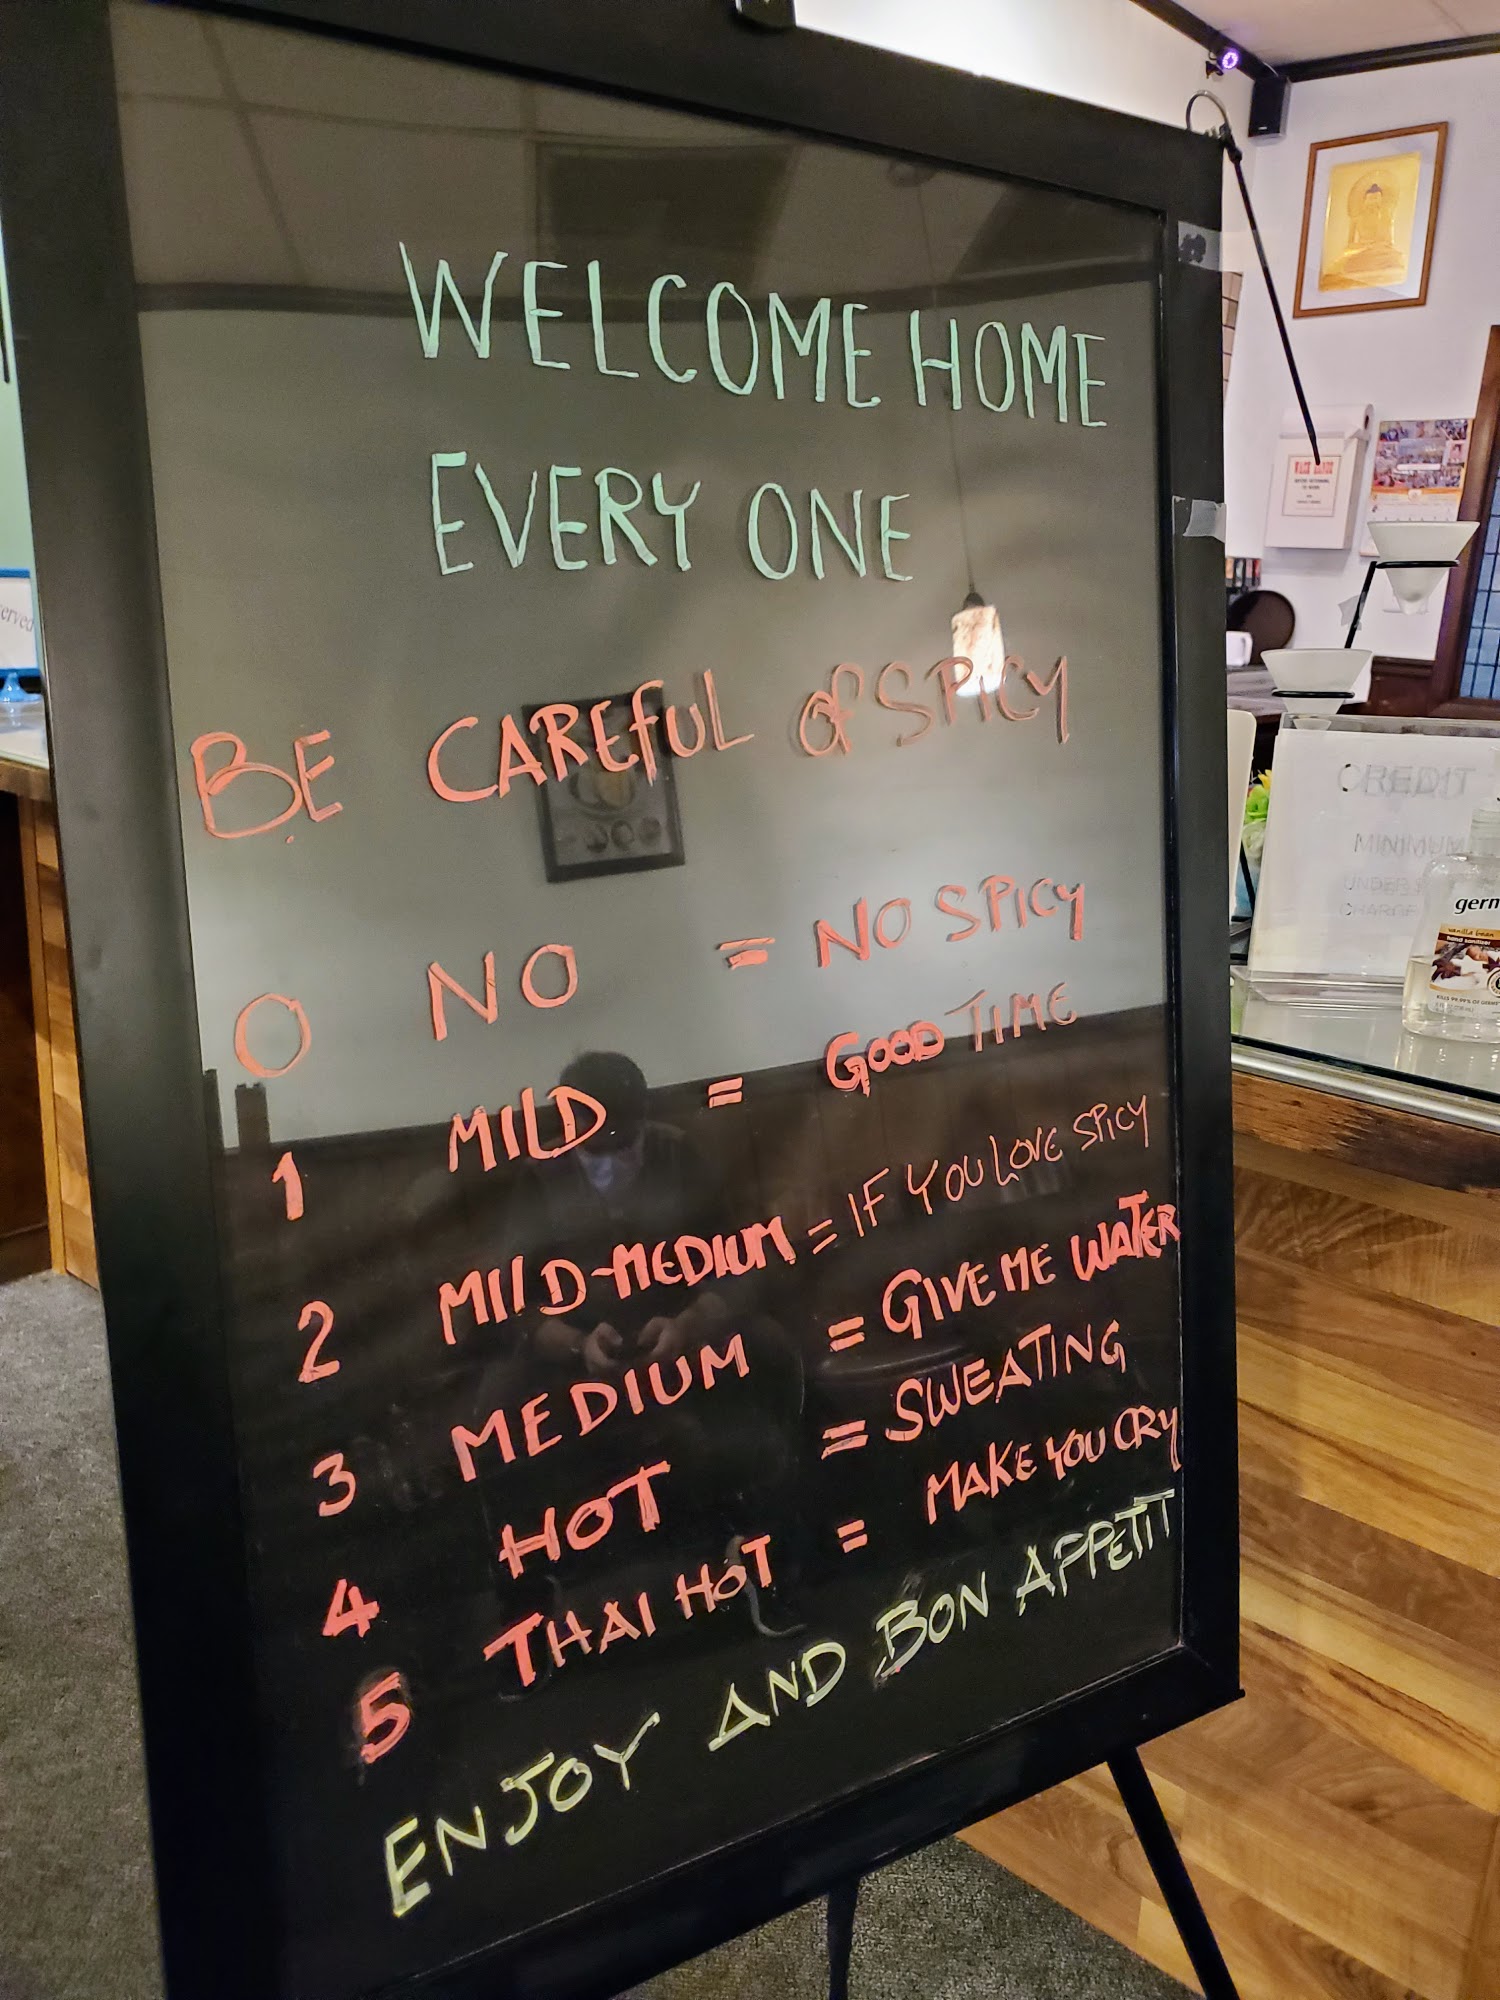 WELCOME HOME
EVERY ONE
BE CAREfUL Of SPICY
0 NO = NO SPICY
1 MILD = GOOD TIME
2 MIlD-MEDIUM = IF YOU LOVE SPICY
3 MEDIUM = GIVE ME WATER
4 HOT = SWEATING
5 THAI HOT = MAKE YOU CRY
ENJOY AND BON APPETIT
WASH HANDS
CREDIT
MINIMUM
UNDER
CHARGE
germ
vanilla bean
hand sanitizer
erved